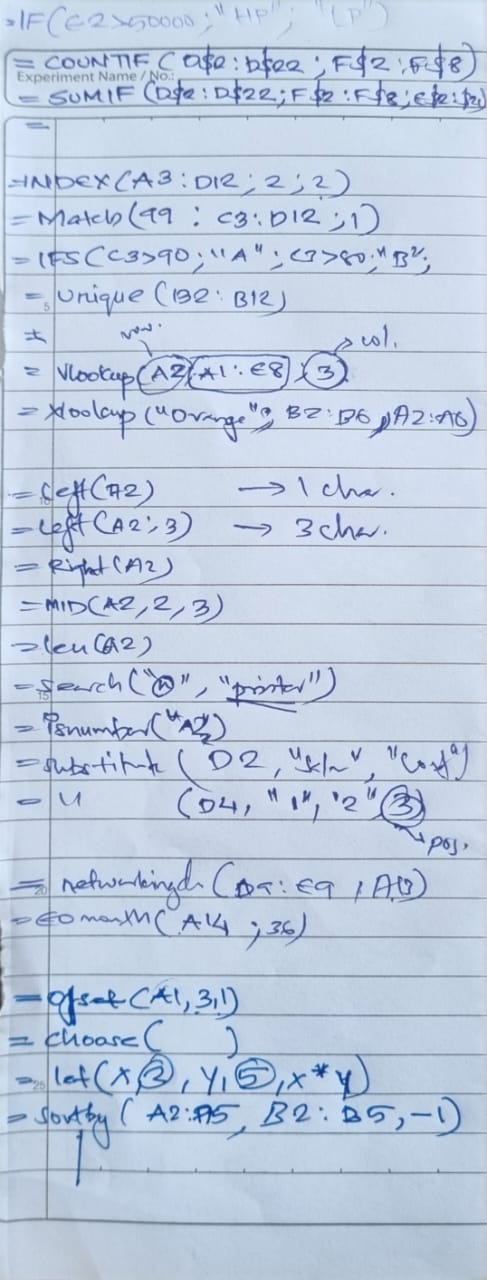 =IF(C2>50000;"HP"; "LP")
= COUNTIF (D$2:D$22; F$2:F$8)
Experiment Name / No.:
= SUMIF (D$2:D$22;F$2:F$8;E$2:
=
=INDEX(A3:D12;2;2)
=Match(99 : C3:D12;1)
=IFS(C3>90;"A";C3>80;"B";
= Unique (B2:B12)
row.
col.
= Vlookup(A2 A1:E8 3)
= Xlookup ("Orange"; B2:B6, A2:A6)
= Left(A2) → 1 char.
= Left (A2;3) → 3 char.
= Right(A2)
= MID(A2,2,3)
= len(A2)
= Search("n", "printer")
= Isnumber("A2")
= substitute ( D2, "Sln", "Cost")
= u (D4, "1", "2" 3)
pos.
= networkingds (D9:E9, A13)
= EOmonth( A14 ; 36)
= ofset(A1,3,1)
= choose( )
= let(x,2, y,5,x*y)
= Sortby ( A2:A5, B2:B5,-1)